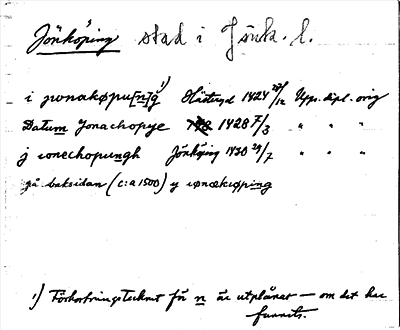 Jönköping stad i Jönk. l.
i jwonakøpu[n]g 1) Håstryd 1424 28/12 Upps. dipl. orig
Datum Jonachopye 1428 7/3 " " "
j ionechopungh Jönköping 1430 24/7 " " "
på baksidan (c:a 1500) y iønækiøping
1) Förkortningstecknet för n är utplånat — om det har
funnits.